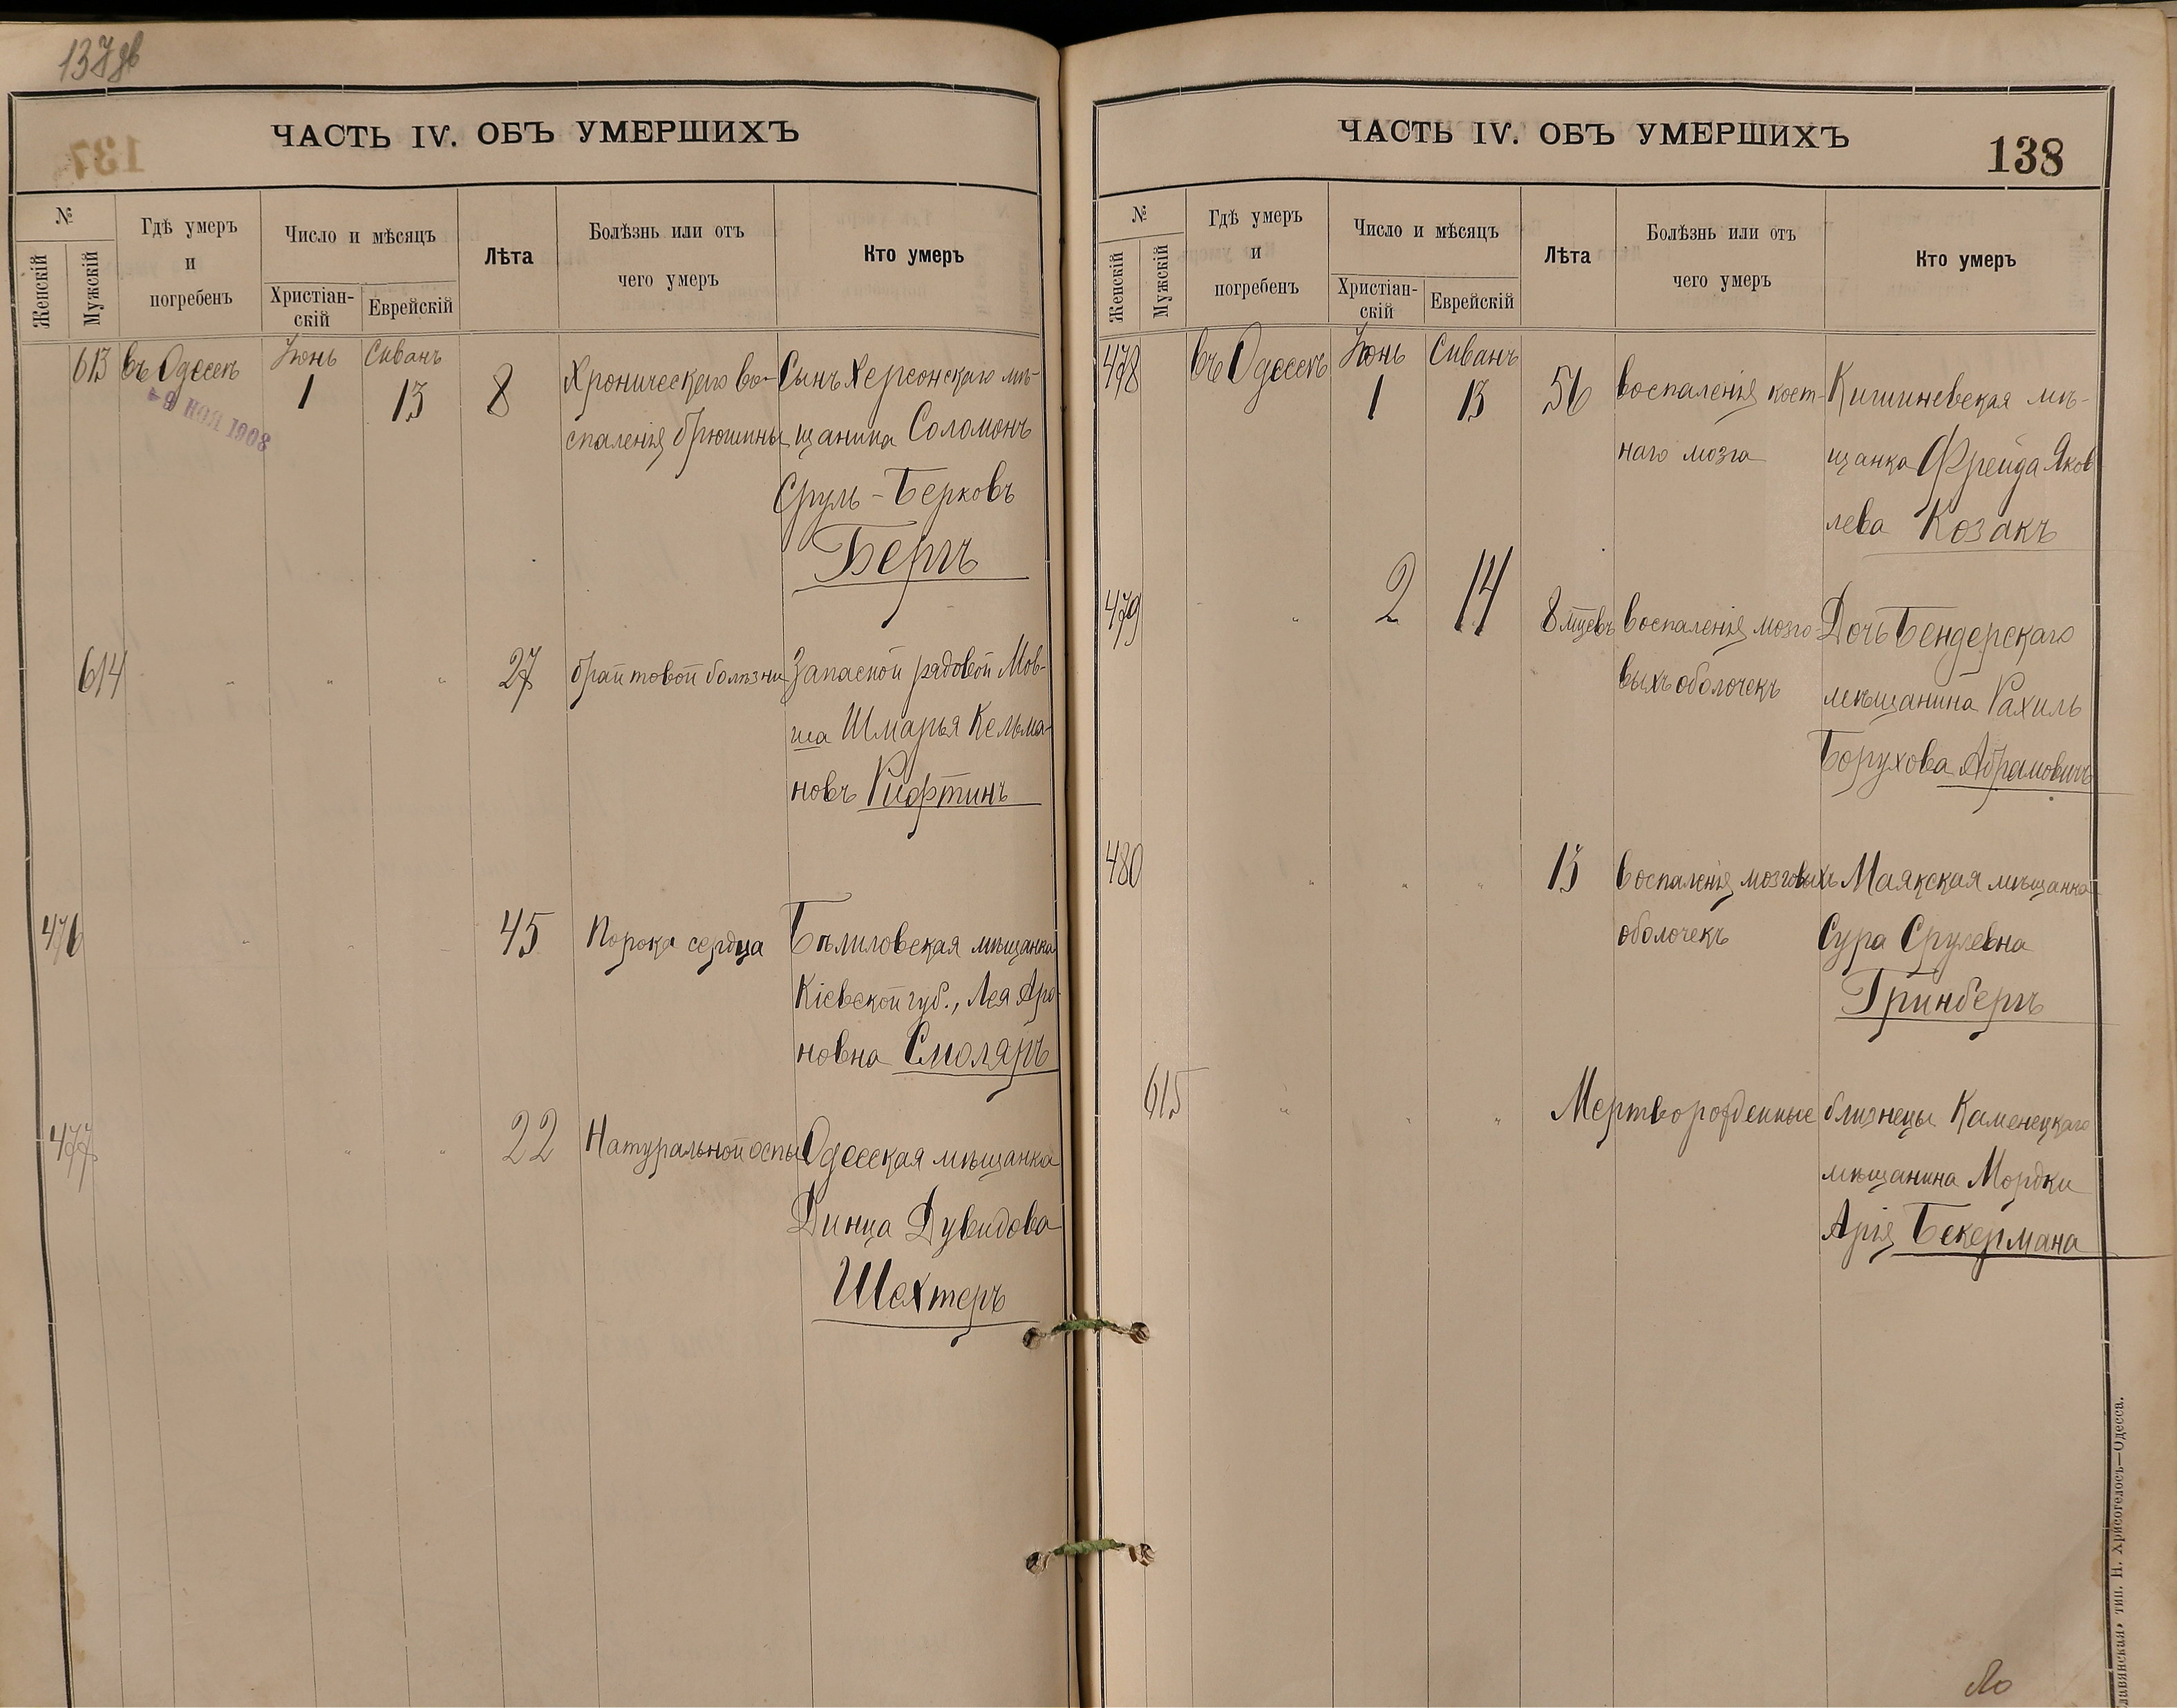 137 об
ЧАСТЬ IV. ОБЪ УМЕРШИХЪ
№
Женскій
Мужскій
Гдѣ умеръ
и
погребенъ
Число и мѣсяцъ
Христіан-
скій
Еврейскій
Лѣта
Болѣзнь или отъ
чего умеръ
Кто умеръ
613 въ Одессѣ Іюнь Сиванъ
1 13 8 Хроническаго во- Сынъ Херсонскаго мѣ-
НОЯ 1908
спаленія брюшины щанина Соломонъ
Сруль-Берковъ
Бергъ
614 " " " 27 брайтовой болѣзни Запасной рядовой Мов-
ша Шмарья Кельма-
новъ Рифтинъ
476 " " " 45 Порока сердца Бѣлиловская мѣщанка
Кіевской губ., Лея Аро-
новна Смоляръ
477 " " 22 Натуральной оспы Одесская мѣщанка
Динца Дувидова
Шехтеръ
ЧАСТЬ IV. ОБЪ УМЕРШИХЪ
138
№
Женскій
Мужскій
Гдѣ умеръ
и
погребенъ
Число и мѣсяцъ
Христіан-
скій
Еврейскій
Лѣта
Болѣзнь или отъ
чего умеръ
Кто умеръ
478 въ Одессѣ Іюнь Сиванъ
1 13 56 воспаленія кост- Кишиневская мѣ-
наго мозга щанка Фрейда Яков
лева Козакъ
479 " 2 14 8 мцевъ воспаленія мозго Дочь Бендерскаго
выхъ оболочекъ мѣщанина Рахиль
Борухова Абрамовичъ
480 " " " 13 воспаленія мозговыхъ Маякская мѣщанка
оболочекъ Сура Срулевна
Гринбергъ
615 " " " Мертворожденные близнецы Каменецкаго
мѣщанина Мордки
Арія Бекермана
тип. Н. Хрисогелосъ—Одесса.